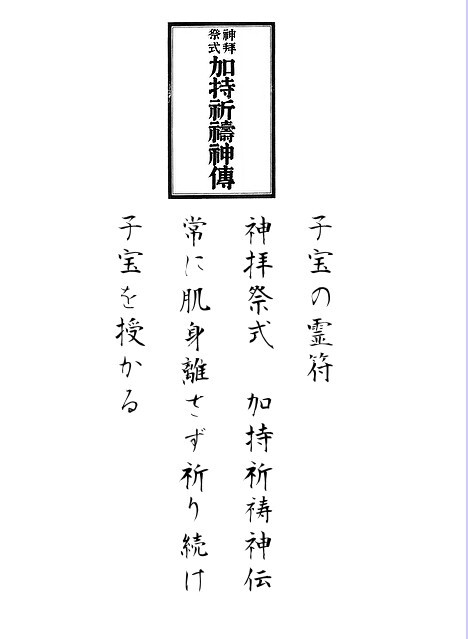 神拜
祭式
加持祈禱神傳
子宝の霊符
神拝祭式 加持祈祷神伝
常に肌身離さず祈り続け
子宝を授かる